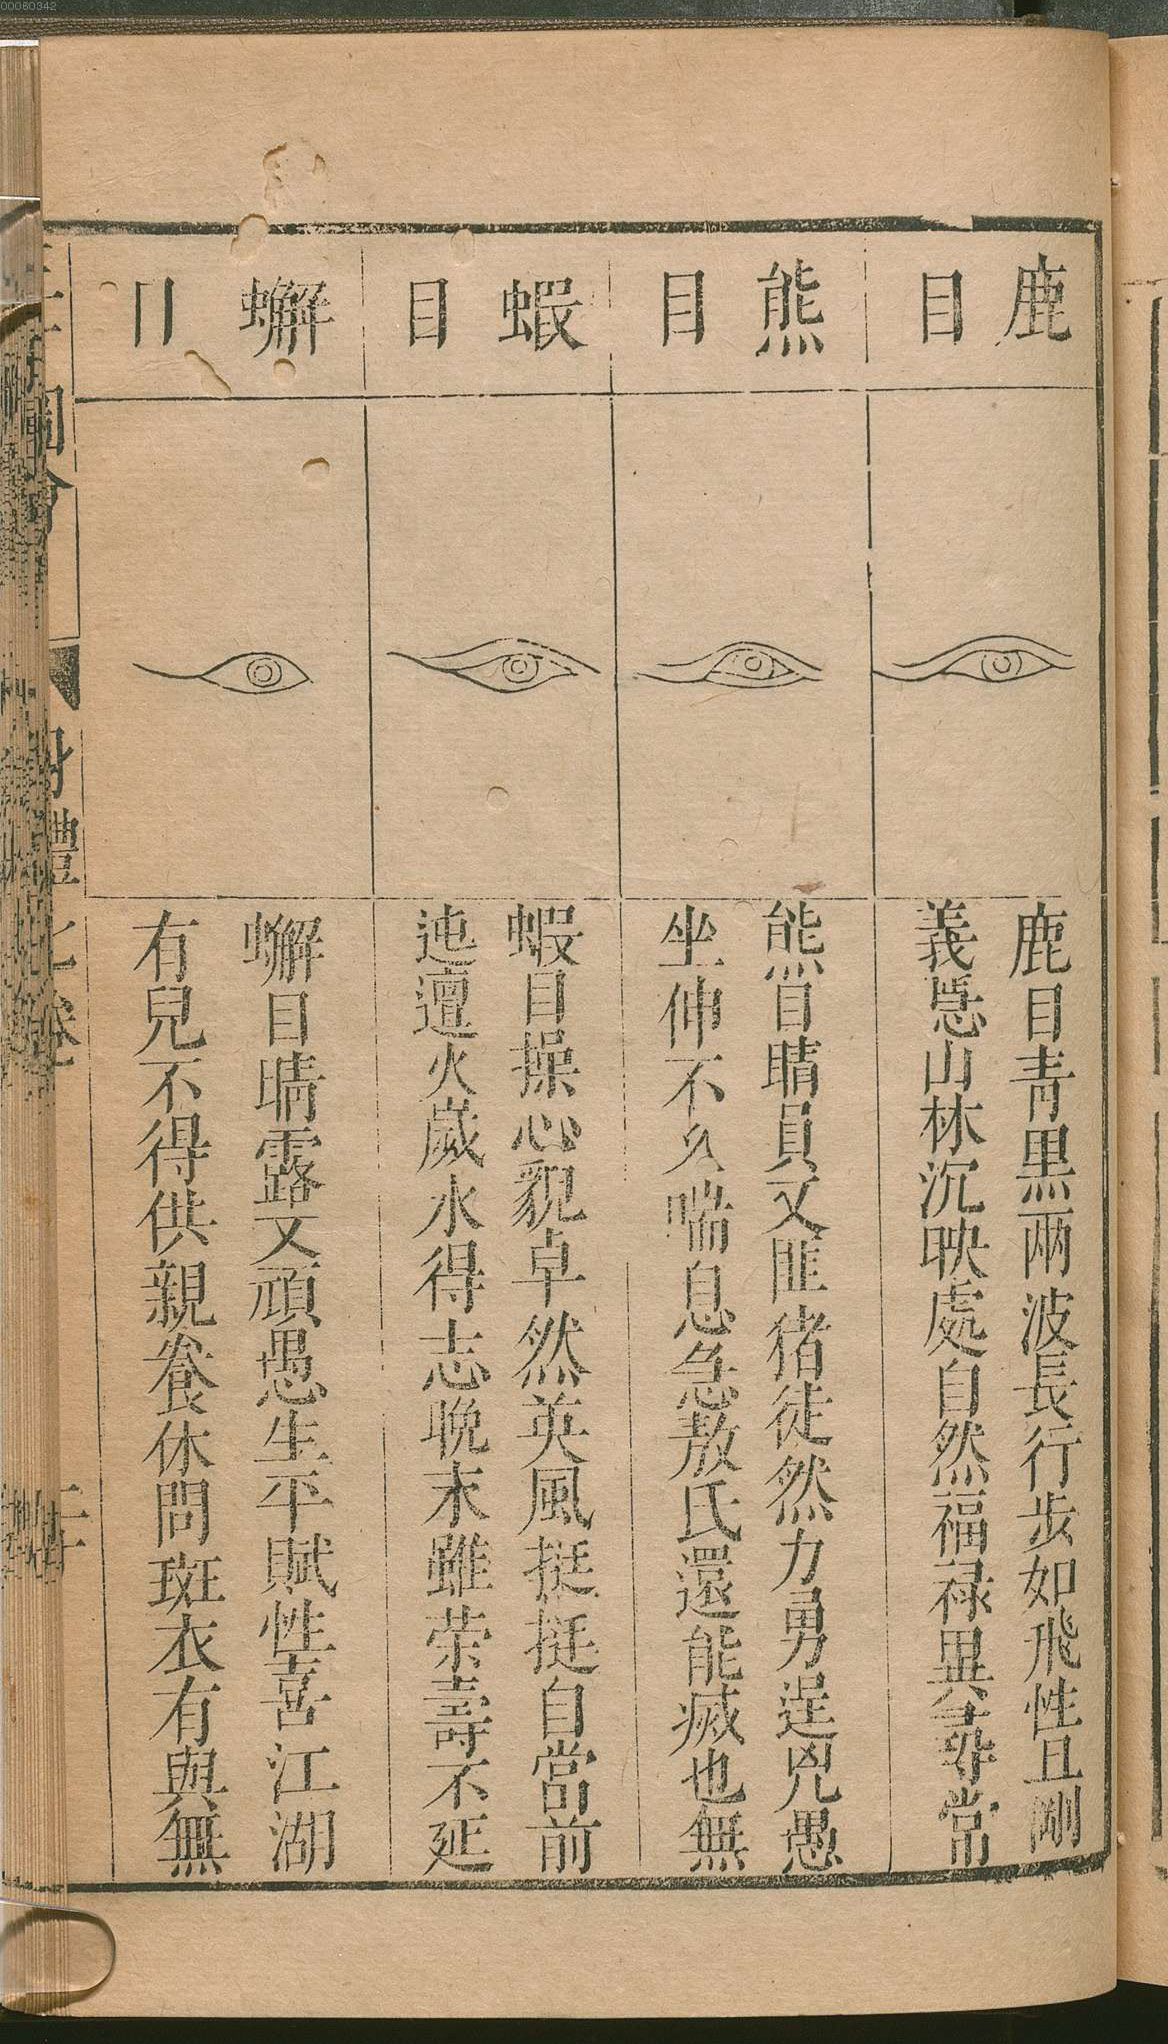 00080342
鹿目
鹿目青黑兩波長行步如飛性且剛
義急山林沉映處自然福禄異尋常
熊目
熊目睛員又匪猪徒然力勇逞兇愚
坐伸不久喘息急敖氏還能滅也無
蝦目
蝦目操心貌卓然英風挺挺自當前
迍邅火歲水得志晚末雖荣壽不延
蠏目
蠏目睛露又頑愚生平賦性喜江湖
有兒不得供親養休問斑衣有與無
圖會
身體七卷